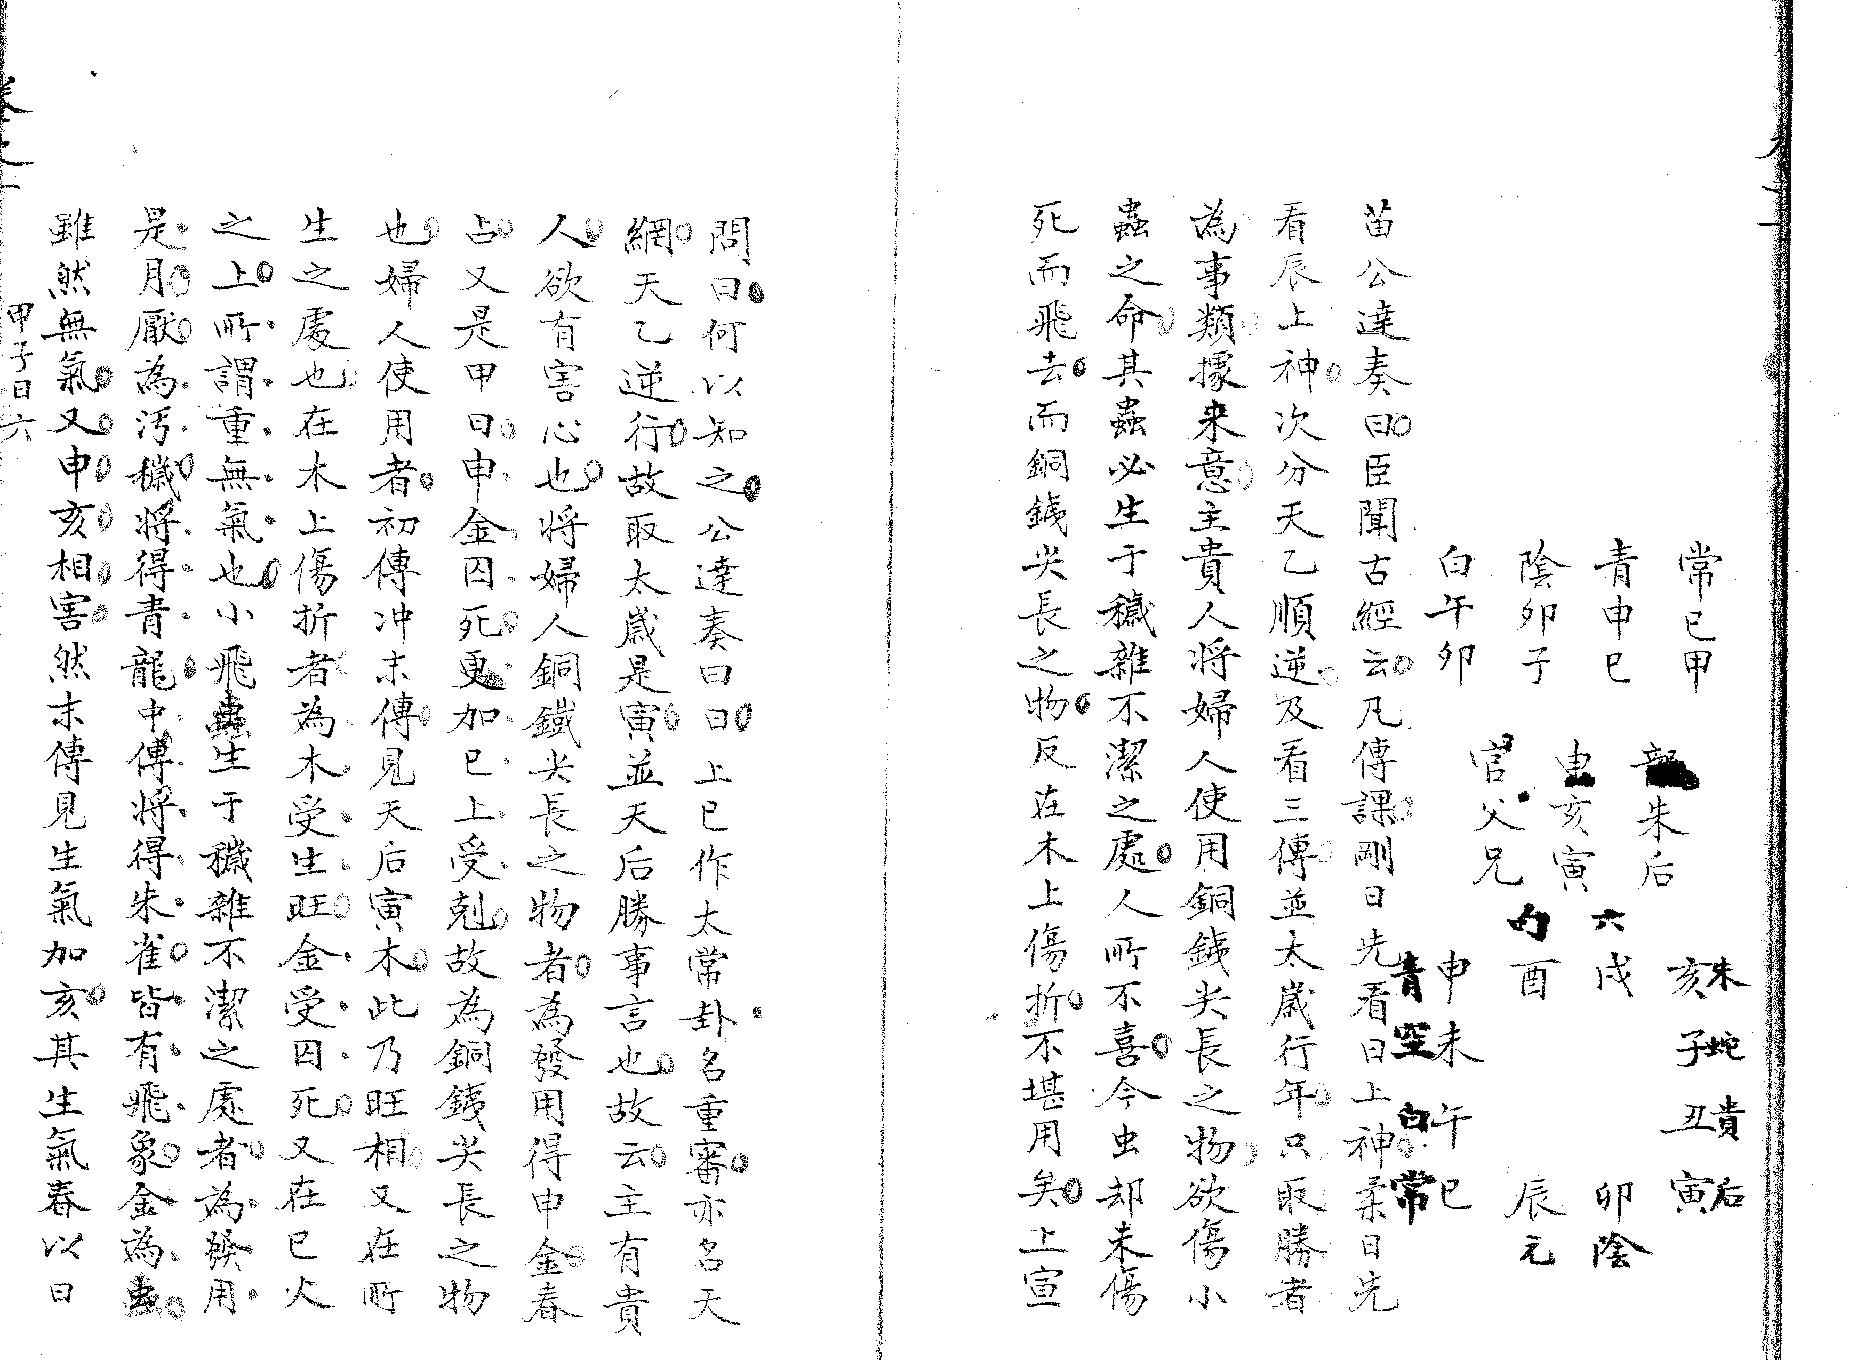 常巳甲
青申巳
陰卯子
白午卯
朱后
亥寅
官父兄
六戌
勾酉
亥朱
子蛇
丑貴
寅后
申青
未空
午白
巳常
卯陰
辰元
苗公達奏曰臣聞古經云凡傳課剛日先看日上神柔日先
看辰上神次分天乙順逆及看三傳並太歲行年只取勝者
為事類據来意主貴人將婦人使用銅銕尖長之物欲傷小
蟲之命其蟲必生于穢雜不潔之處人所不喜今虫却未傷
死而飛去而銅銕尖長之物反在木上傷折不堪用矣上宣
問曰何以知之公達奏曰曰上巳作太常卦名重審亦名天
網天乙逆行故取太歲是寅並天后勝事言也故云主有貴
人欲有害心也將婦人銅鐵尖長之物者為發用得申金春
占又是甲日申金囚死更加巳上受剋故為銅銕尖長之物
也婦人使用者初傳冲末傳見天后寅木此乃旺相又在所
生之處也在木上傷折者為木受生旺金受囚死又在巳火
之上所謂重無氣也小飛蟲生于穢雜不潔之處者為發用
是月厭為汚穢將得青龍中傳將得朱雀皆有飛象金為蟲
雖然無氣又申亥相害然末傳見生氣加亥其生氣春以日
甲子日六